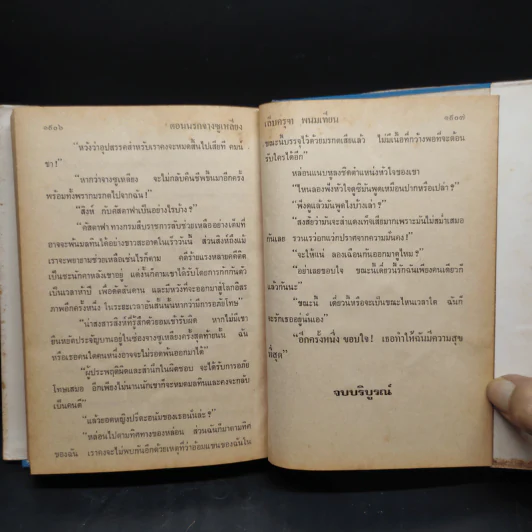 ๑๙๐๖ ตอนนรกจางซูเหลียง
"หวังว่าอุปสรรคสำหรับเราคงจะหมดสิ้นไปเสียที คมน์
ชา!"
"หากว่าจางซูเหลียง จะไม่กลับคืนชีพขึ้นมาอีกครั้ง
พร้อมทั้งพรากมรกตไปจากฉัน!"
"สิงห์ กับคัสตาฟาเป็นอย่างไรบ้าง?"
"คัสตาฟา ทางกรมสืบราชการลับช่วยเหลืออย่างเต็มที่
อาจจะพ้นมลทินได้อย่างขาวสะอาดในเร็ววันนี้ ส่วนสิงห์ถึงแม้
เราจะพยายามช่วยเหลือเช่นไรก็ตาม คดีร้ายแรงหลายคดีคง
เป็นชะนักคาหลังเขาอยู่ แต่ถึงนักก็ตามเขาได้รับโดยการกักกันตัว
เป็นเวลาห้าปี เพื่อดัดสันดาน และมีหวังที่จะออกมาสู่โลกอิสร
ภาพอีกครั้งหนึ่ง ในระยะเวลาอันสั้นนั้นหากว่ามีการอภัยโทษ"
"น่าสะสารสิงห์ที่รู้สึกตัวยอมเข้ารับผิด หากไม่มีเขา
ยืนหยัดประจัญบานอยู่ในช่องจางซูเหลียงครั้งสุดท้ายนั้น ฉัน
หรือเธอคนใดคนหนึ่งอาจจะไม่รอดพ้นออกมาได้"
"ผู้ประพฤติผิดและสำนึกในผิดชอบ จะได้รับการอภัย
โทษเสมอ อีกเพียงไม่นานนักเขาก็จะหมดมลทินและคงจะกลับ
เป็นคนดี"
"แล้วยอดหญิงปรีดะอนันของเธอนั่นล่ะ?"
"หล่อนไปตามทิศทางของหล่อน ส่วนฉันก็มาตามทิศ
ของฉัน เราคงจะไม่พบกันอีกด้วยเหตุที่ว่าอ้อมแขนของฉันใน
เล็บครุฑ พนมเทียน ๑๙๐๗
ขณะนี้บรรจุไว้ด้วยมรกตเสียแล้ว ไม่มีเนื้อที่กว้างพอที่จะต้อน
รับใครได้อีก"
หล่อนแนบหูลงชิดตำแหน่งหัวใจของเขา
"ไหนลองฟังหัวใจดูซิมันพูดเหมือนปากหรือเปล่า?"
"ฟังดูแล้วมันพูดไปบ้างเล่า?"
"สงสัยว่ามันจะสำแดงเท็จเสียมากเพราะมันไม่สม่ำเสมอ
กันเลย รวนเรวอกแวกปราศจากความมั่นคง!"
"จะให้แน่ ลองเฉือนกันออกมาดูไหม?"
"อย่าเลยขอบใจ ขณะนี้เดี๋ยวนี้รักฉันเพียงคนเดียวก็
แล้วกันนะ"
"ขณะนี้ เดี๋ยวนี้หรือจะเป็นขณะไหนเวลาใด ฉันก็
จะรักเธออยู่นั่นเอง"
"อีกครั้งหนึ่ง ขอบใจ! เธอทำให้ฉันมีความสุข
ที่สุด"
จบบริบูรณ์